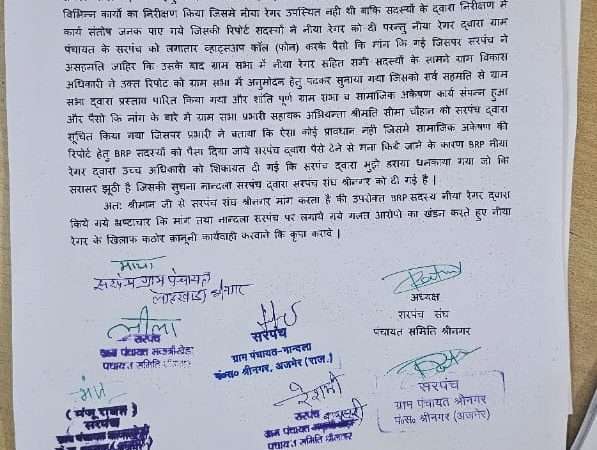 विभिन्न कार्यो का निरीक्षण किया जिसमे नीया रेगर उपस्थित नही थी बाकि सदस्यों के द्वारा निरीक्षण में
कार्य संतोष जनक पाए गये जिसकी रिपोर्ट सदस्यों ने नीया रेगर को दी परन्तु नीया रेगर द्वारा ग्राम
पंचायत के सरपंच को लगातार व्हाट्सअप कॉल (फोन) करके पैसो कि मांग कि गई जिसपर सरपंच ने
असहमति जाहिर कि उसके बाद ग्राम सभा में नीया रेगर सहित सभी सदस्यों के सामने ग्राम विकास
अधिकारी ने उक्त रिपोर्ट को ग्राम सभा में अनुमोदन हेतु पढकर सुनाया गया जिसको सर्व सहमति से ग्राम
सभा द्वारा प्रस्ताव पारित किया गया और शांति पूर्ण ग्राम सभा व सामाजिक अकेषण कार्य संपन्न हुआ
और पैसो कि मांग के बारे में ग्राम सभा प्रभारी सहायक अभियन्ता श्रीमति सीमा चौहान को सरपंच द्वारा
सूचित किया गया जिसपर प्रभारी ने बताया कि ऐसा कोई प्रावधान नही जिसमे सामाजिक अकेषण की
रिपोर्ट हेतु BRP सदस्यों को पैसा दिया जाये सरपंच द्वारा पैसे देने से मना किये जाने के कारण BRP नीया
रेगर द्वारा उच्च अधिकारी को शिकायत दी गई कि सरपंच द्वारा मुझे डराया धमकाया गया जो कि
सरासर झूठी है जिसकी सुचना नान्दला सरपंच द्वारा सरपंच संघ श्रीनगर को दी गई है |
अतः श्रीमान जी से सरपंच संघ श्रीनगर मांग करता है की उपरोक्त BRP सदस्य नीया रेगर द्वारा
किये गये भ्रष्टाचार कि मांग तथा नान्दला सरपंच पर लगाये गये गलत आरोपो का खंडन करते हुए नीया
रेगर के खिलाफ कठोर क़ानूनी कार्यवाही करवाने कि कृपा करावे |
माया
सरपंच ग्राम पंचायत
अध्यक्ष
सरपंच संघ
पंचायत समिति श्रीनगर
लीला
सरपंच
ग्राम पंचायत
पंचायत समिति श्रीनगर
सरपंच
ग्राम पंचायत-नान्दला
पं०स० श्रीनगर, अजमेर (राज.)
मंजू
(मंजू रावत)
सरपंच
रेशमी
सरपंच
ग्राम पंचायत
पंचायत समिति श्रीनगर
सरपंच
ग्राम पंचायत श्रीनगर
पं०स० श्रीनगर (अजमेर)